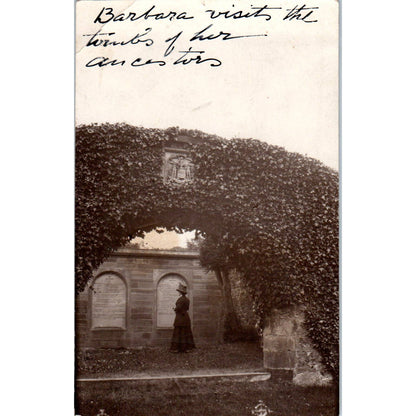 Barbara visits the
tombs of her
ancestors